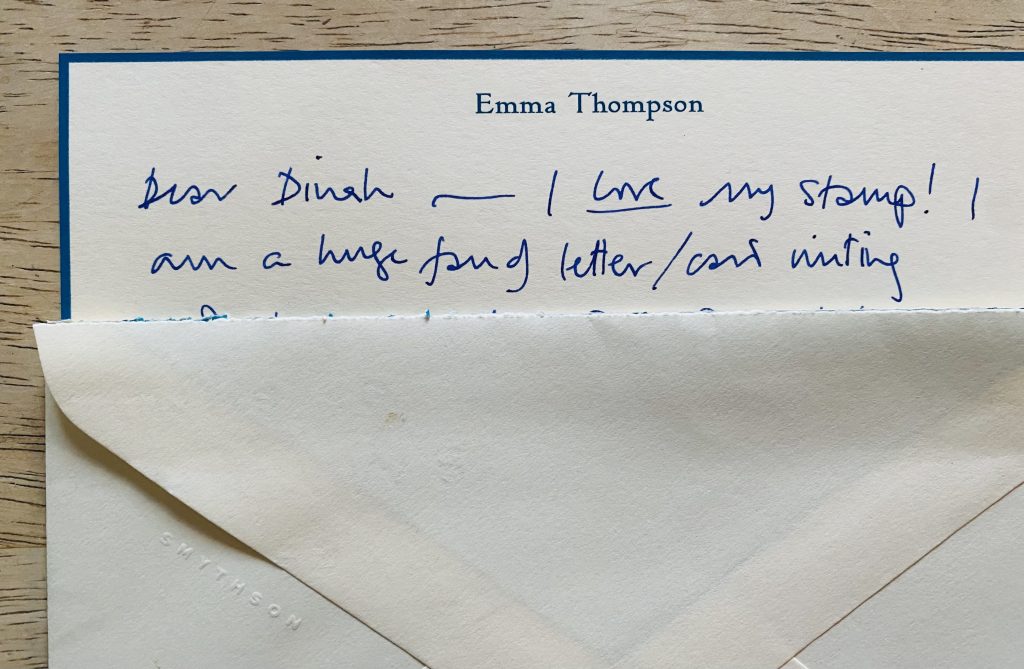 Emma Thompson
Dear Dinah — I love my stamp! I
am a huge fan of letter/card writing
SMYTHSON